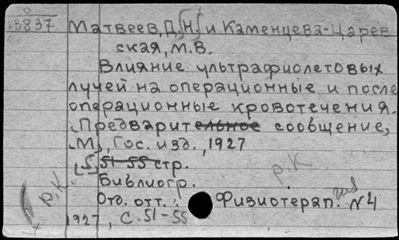 13837 Матвеев, Д.[Н.] и Каменцева-Царев
ская, М.В.
Влияние ультрафиолетовых
лучей на операционные и после
операционные кровотечения.
Предварительное сообщение,
[М], Гос. изд., 1927
[5] 51-55 стр.
Библиогр.
р.К.
р.К.
Отд. отт.: Физиотерап. №4
1927, с. 51-55